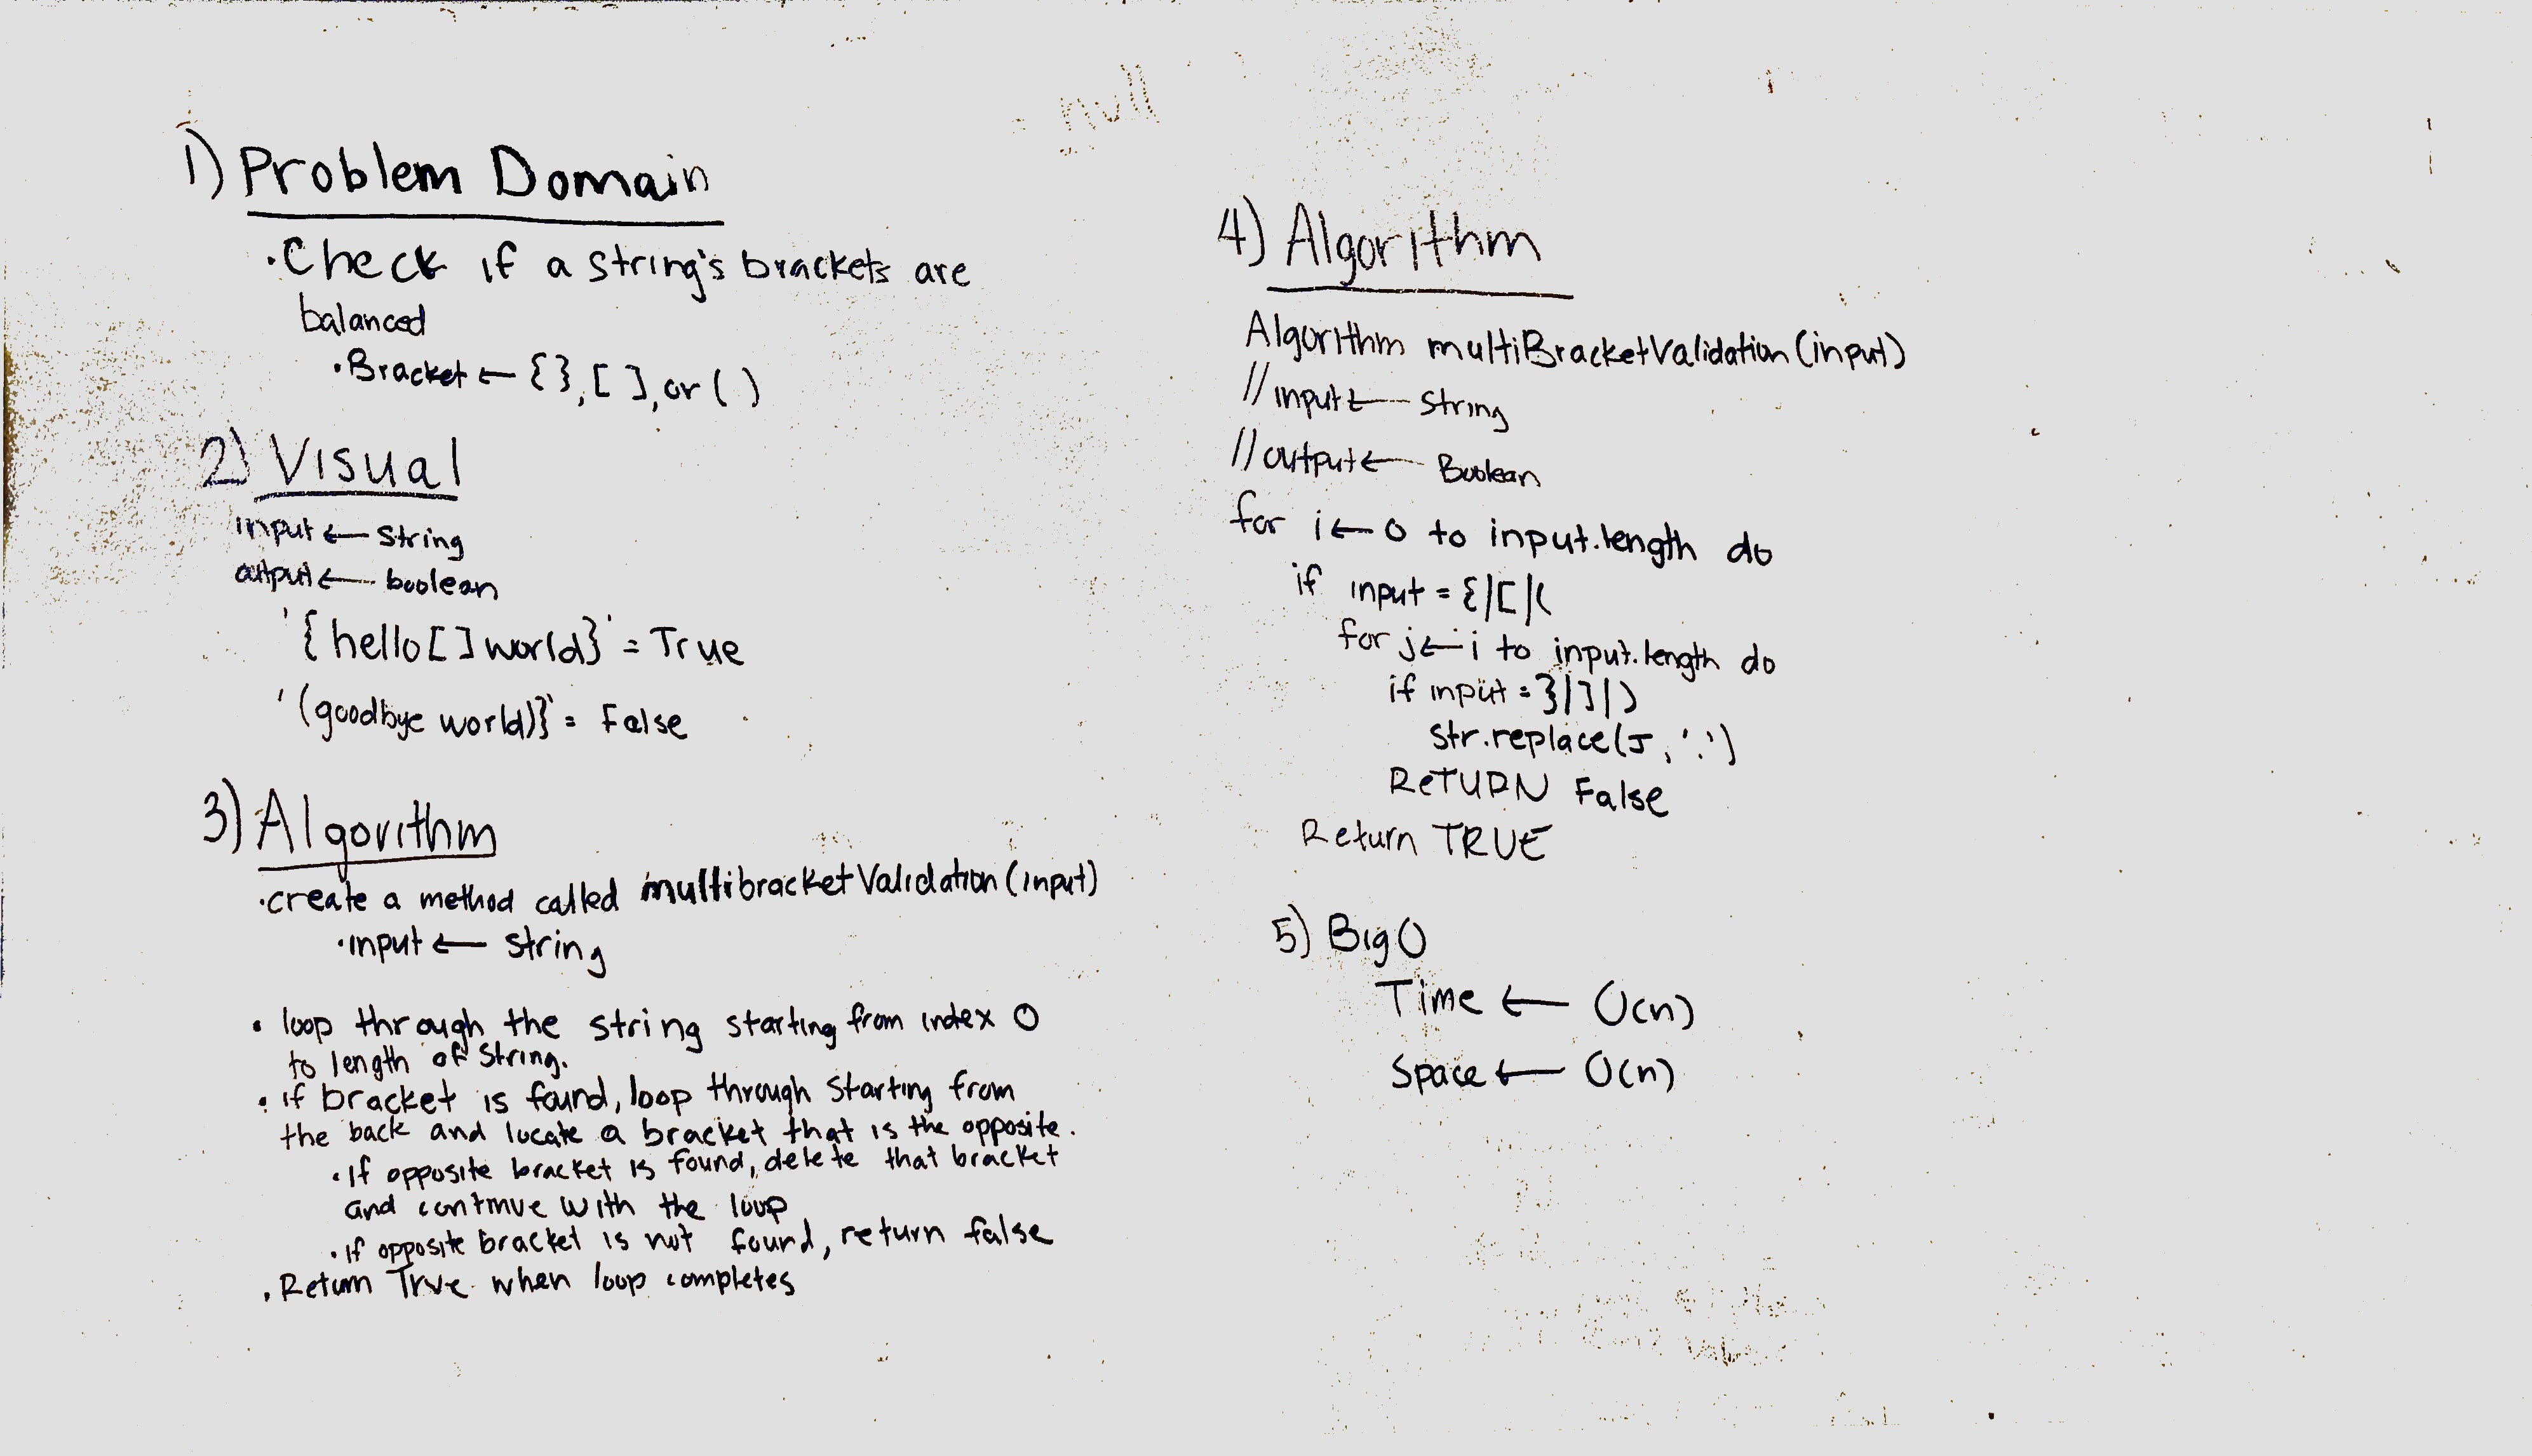 null
1) Problem Domain
·Check if a string's brackets are
balanced
·Bracket ← {}, [ ], or ( )
2) Visual
input ← string
output ← boolean
'{hello[]world}' = True
'(goodbye world)}' = False
3) Algorithm
·create a method called multibracketValidation(input)
·input ← string
· loop through the string starting from index 0
to length of string.
· if bracket is found, loop through starting from
the back and locate a bracket that is the opposite.
·If opposite bracket is found, delete that bracket
and continue with the loop
·if opposite bracket is not found, return false
·Return True when loop completes
4) Algorithm
Algorithm multiBracketValidation(input)
//input ← string
//output ← Boolean
for i ← 0 to input.length do
if input = {|[|(
for j ← i to input.length do
if input = }|]|)
str.replace(J, '.')
ReTURN False
Return TRUE
5) Big O
Time ← O(n)
Space ← O(n)